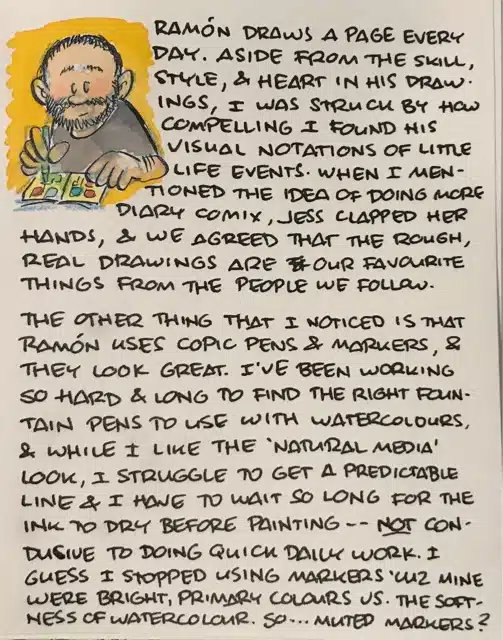 RAMÓN DRAWS A PAGE EVERY
DAY. ASIDE FROM THE SKILL,
STYLE, & HEART IN HIS DRAW-
INGS, I WAS STRUCK BY HOW
COMPELLING I FOUND HIS
VISUAL NOTATIONS OF LITTLE
LIFE EVENTS. WHEN I MEN-
TIONED THE IDEA OF DOING MORE
DIARY COMIX, JESS CLAPPED HER
HANDS, & WE AGREED THAT THE ROUGH,
REAL DRAWINGS ARE OUR FAVOURITE
THINGS FROM THE PEOPLE WE FOLLOW.
THE OTHER THING THAT I NOTICED IS THAT
RAMÓN USES COPIC PENS & MARKERS, &
THEY LOOK GREAT. I'VE BEEN WORKING
SO HARD & LONG TO FIND THE RIGHT FOUN-
TAIN PENS TO USE WITH WATERCOLOURS,
& WHILE I LIKE THE 'NATURAL MEDIA'
LOOK, I STRUGGLE TO GET A PREDICTABLE
LINE & I HAVE TO WAIT SO LONG FOR THE
INK TO DRY BEFORE PAINTING -- NOT CON-
DUSIVE TO DOING QUICK DAILY WORK. I
GUESS I STOPPED USING MARKERS 'CUZ MINE
WERE BRIGHT, PRIMARY COLOURS VS. THE SOFT-
NESS OF WATERCOLOUR. SO... MUTED MARKERS?